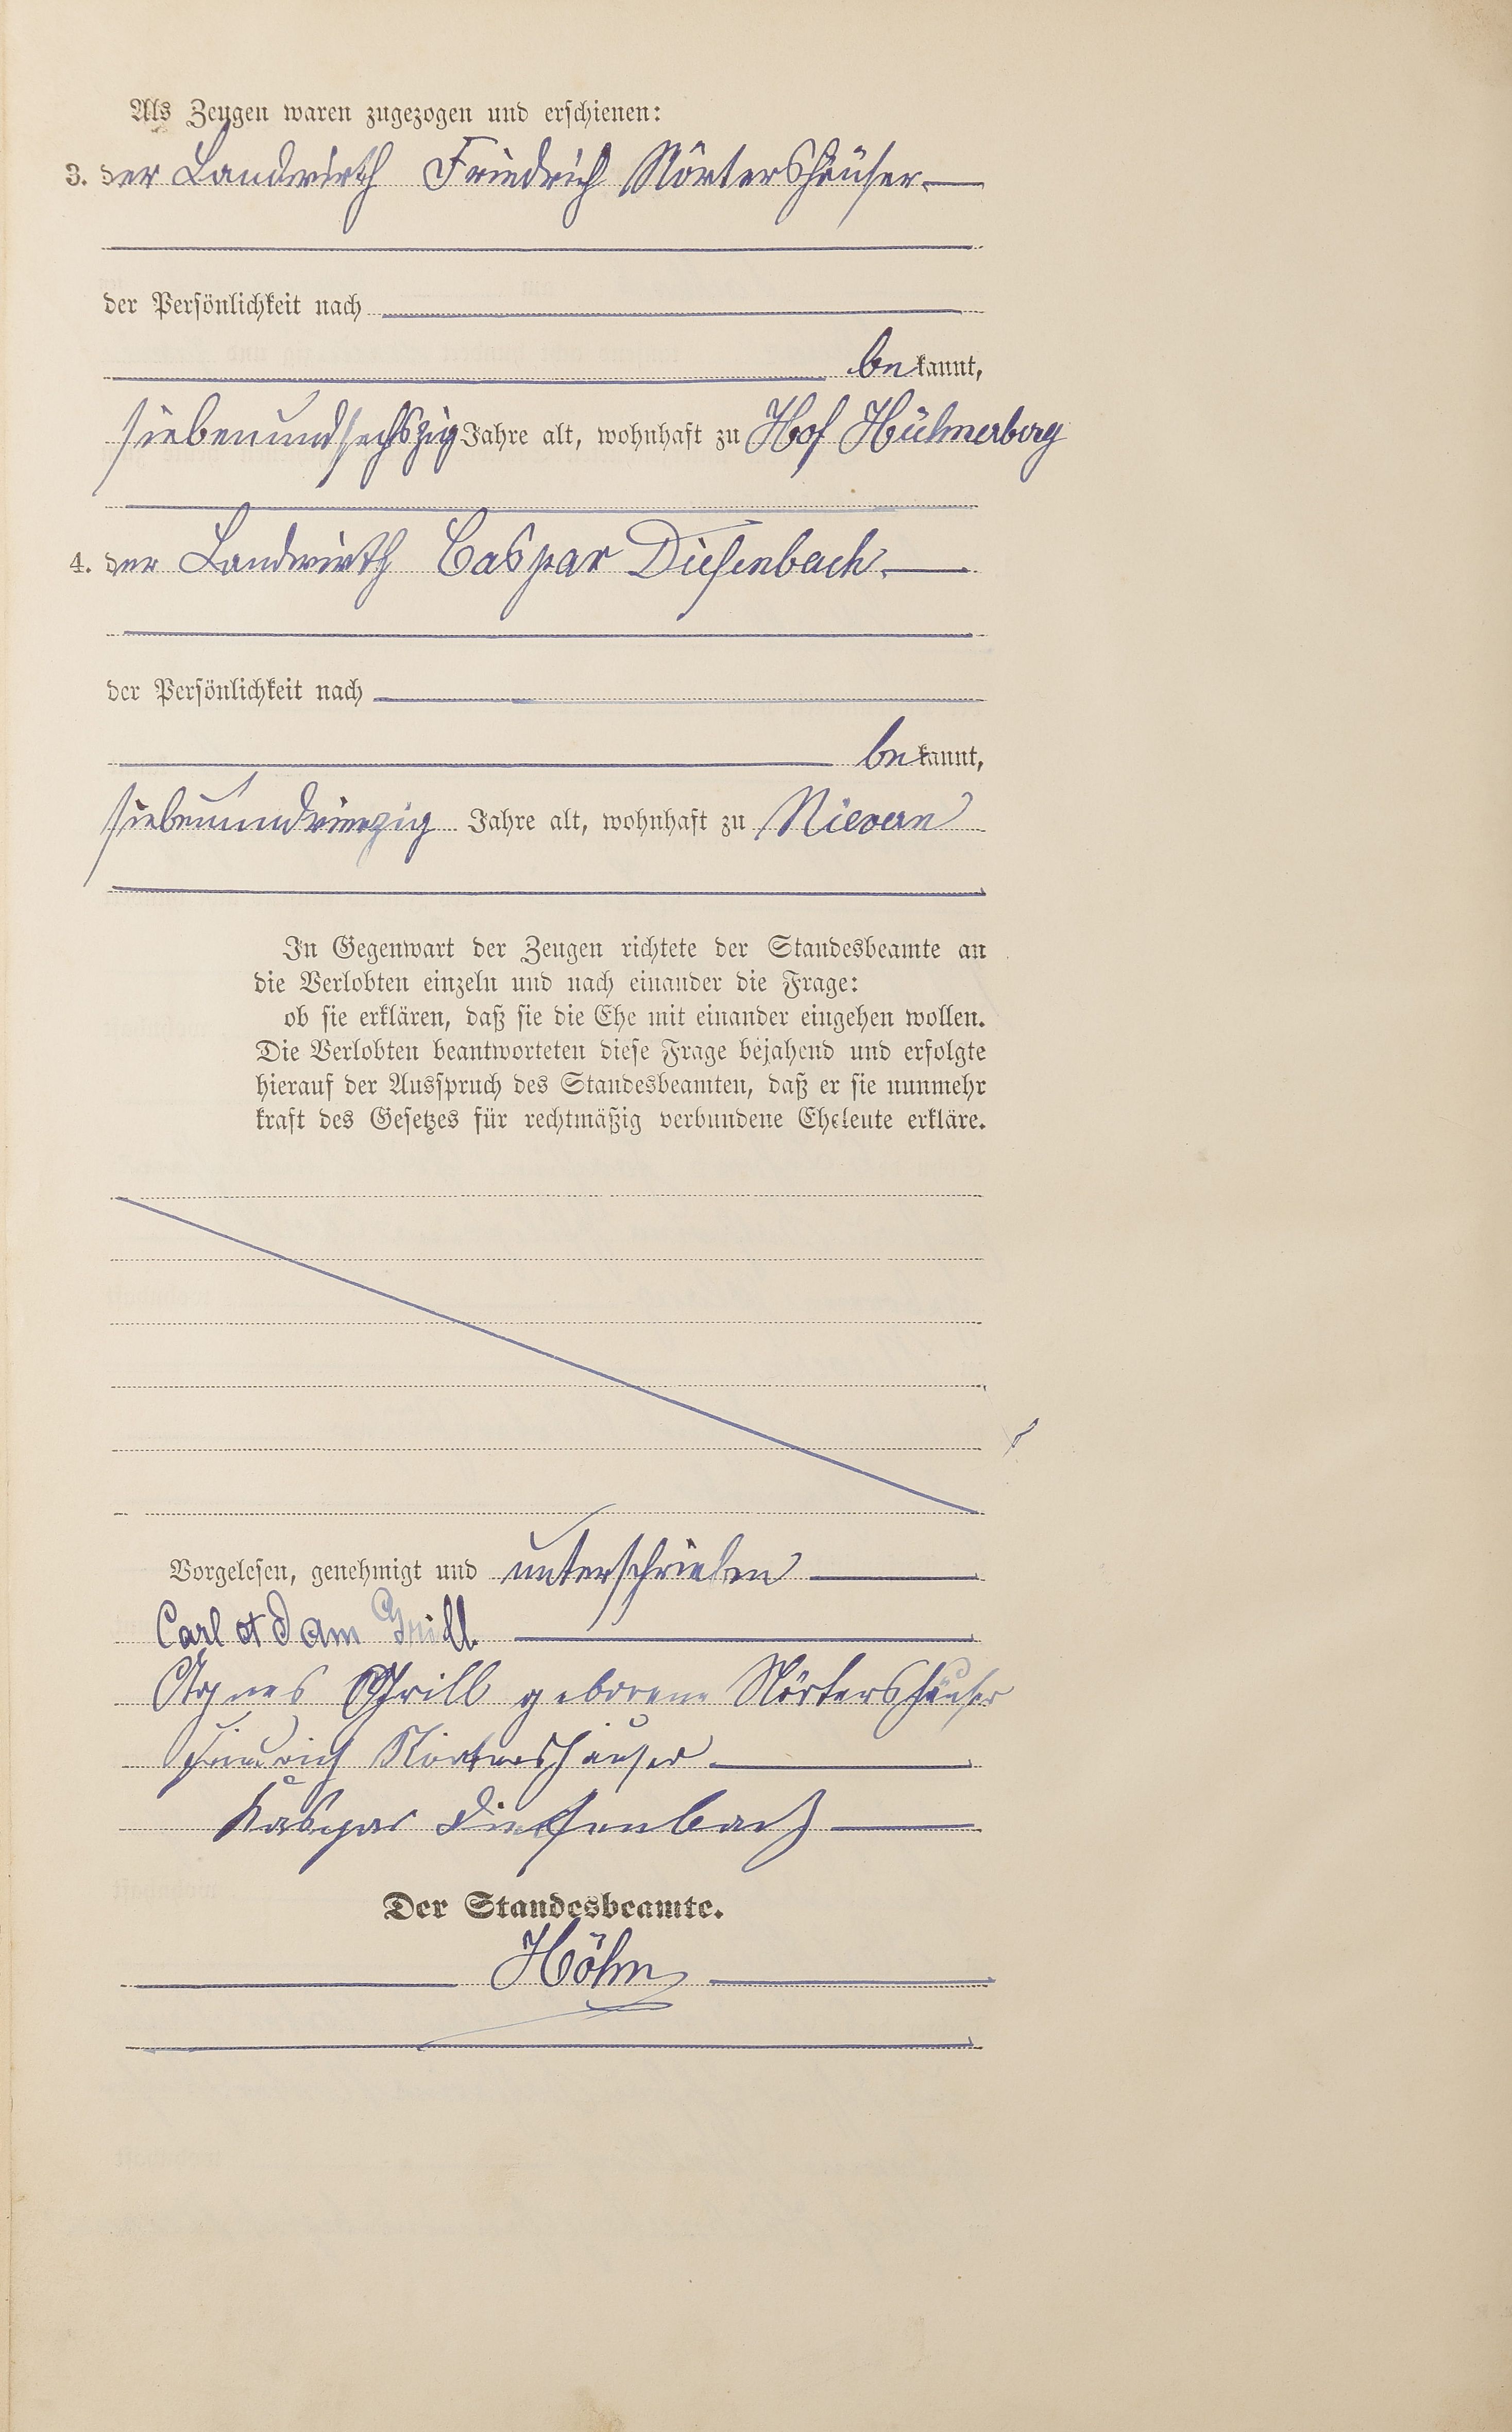 Als Zeugen waren zugezogen und erschienen:
3. der Landwirth Friedrich Nörtershäuser
der Persönlichkeit nach
bekannt,
siebenundsechszig Jahre alt, wohnhaft zu Hof Hühnerberg
4. der Landwirth Caspar Diefenbach
der Persönlichkeit nach
bekannt,
siebenundvierzig Jahre alt, wohnhaft zu Nievern
In Gegenwart der Zeugen richtete der Standesbeamte an
die Verlobten einzeln und nach einander die Frage:
ob sie erklären, daß sie die Ehe mit einander eingehen wollen.
Die Verlobten beantworteten diese Frage bejahend und erfolgte
hierauf der Ausspruch des Standesbeamten, daß er sie nunmehr
kraft des Gesetzes für rechtmäßig verbundene Eheleute erkläre.
Vorgelesen, genehmigt und unterschrieben
Carl Adam Grill
Agnes Grill geborene Nörtershäuser
Friedrich Nörtershäuser
Kaspar Diefenbach
Der Standesbeamte.
Höhn